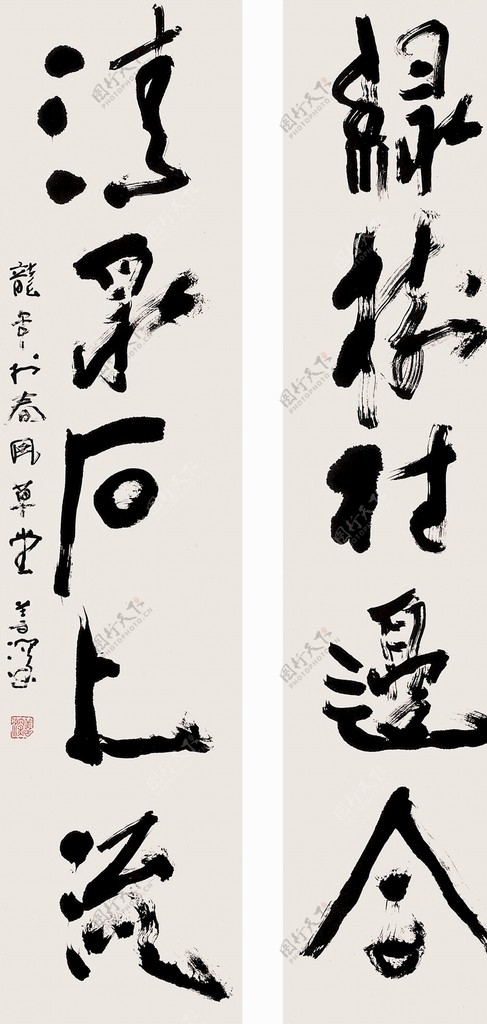 綠樹村邊合
清泉石上流
龍年於春風草堂 善
图行天下
PHOTOPHOTO.CN